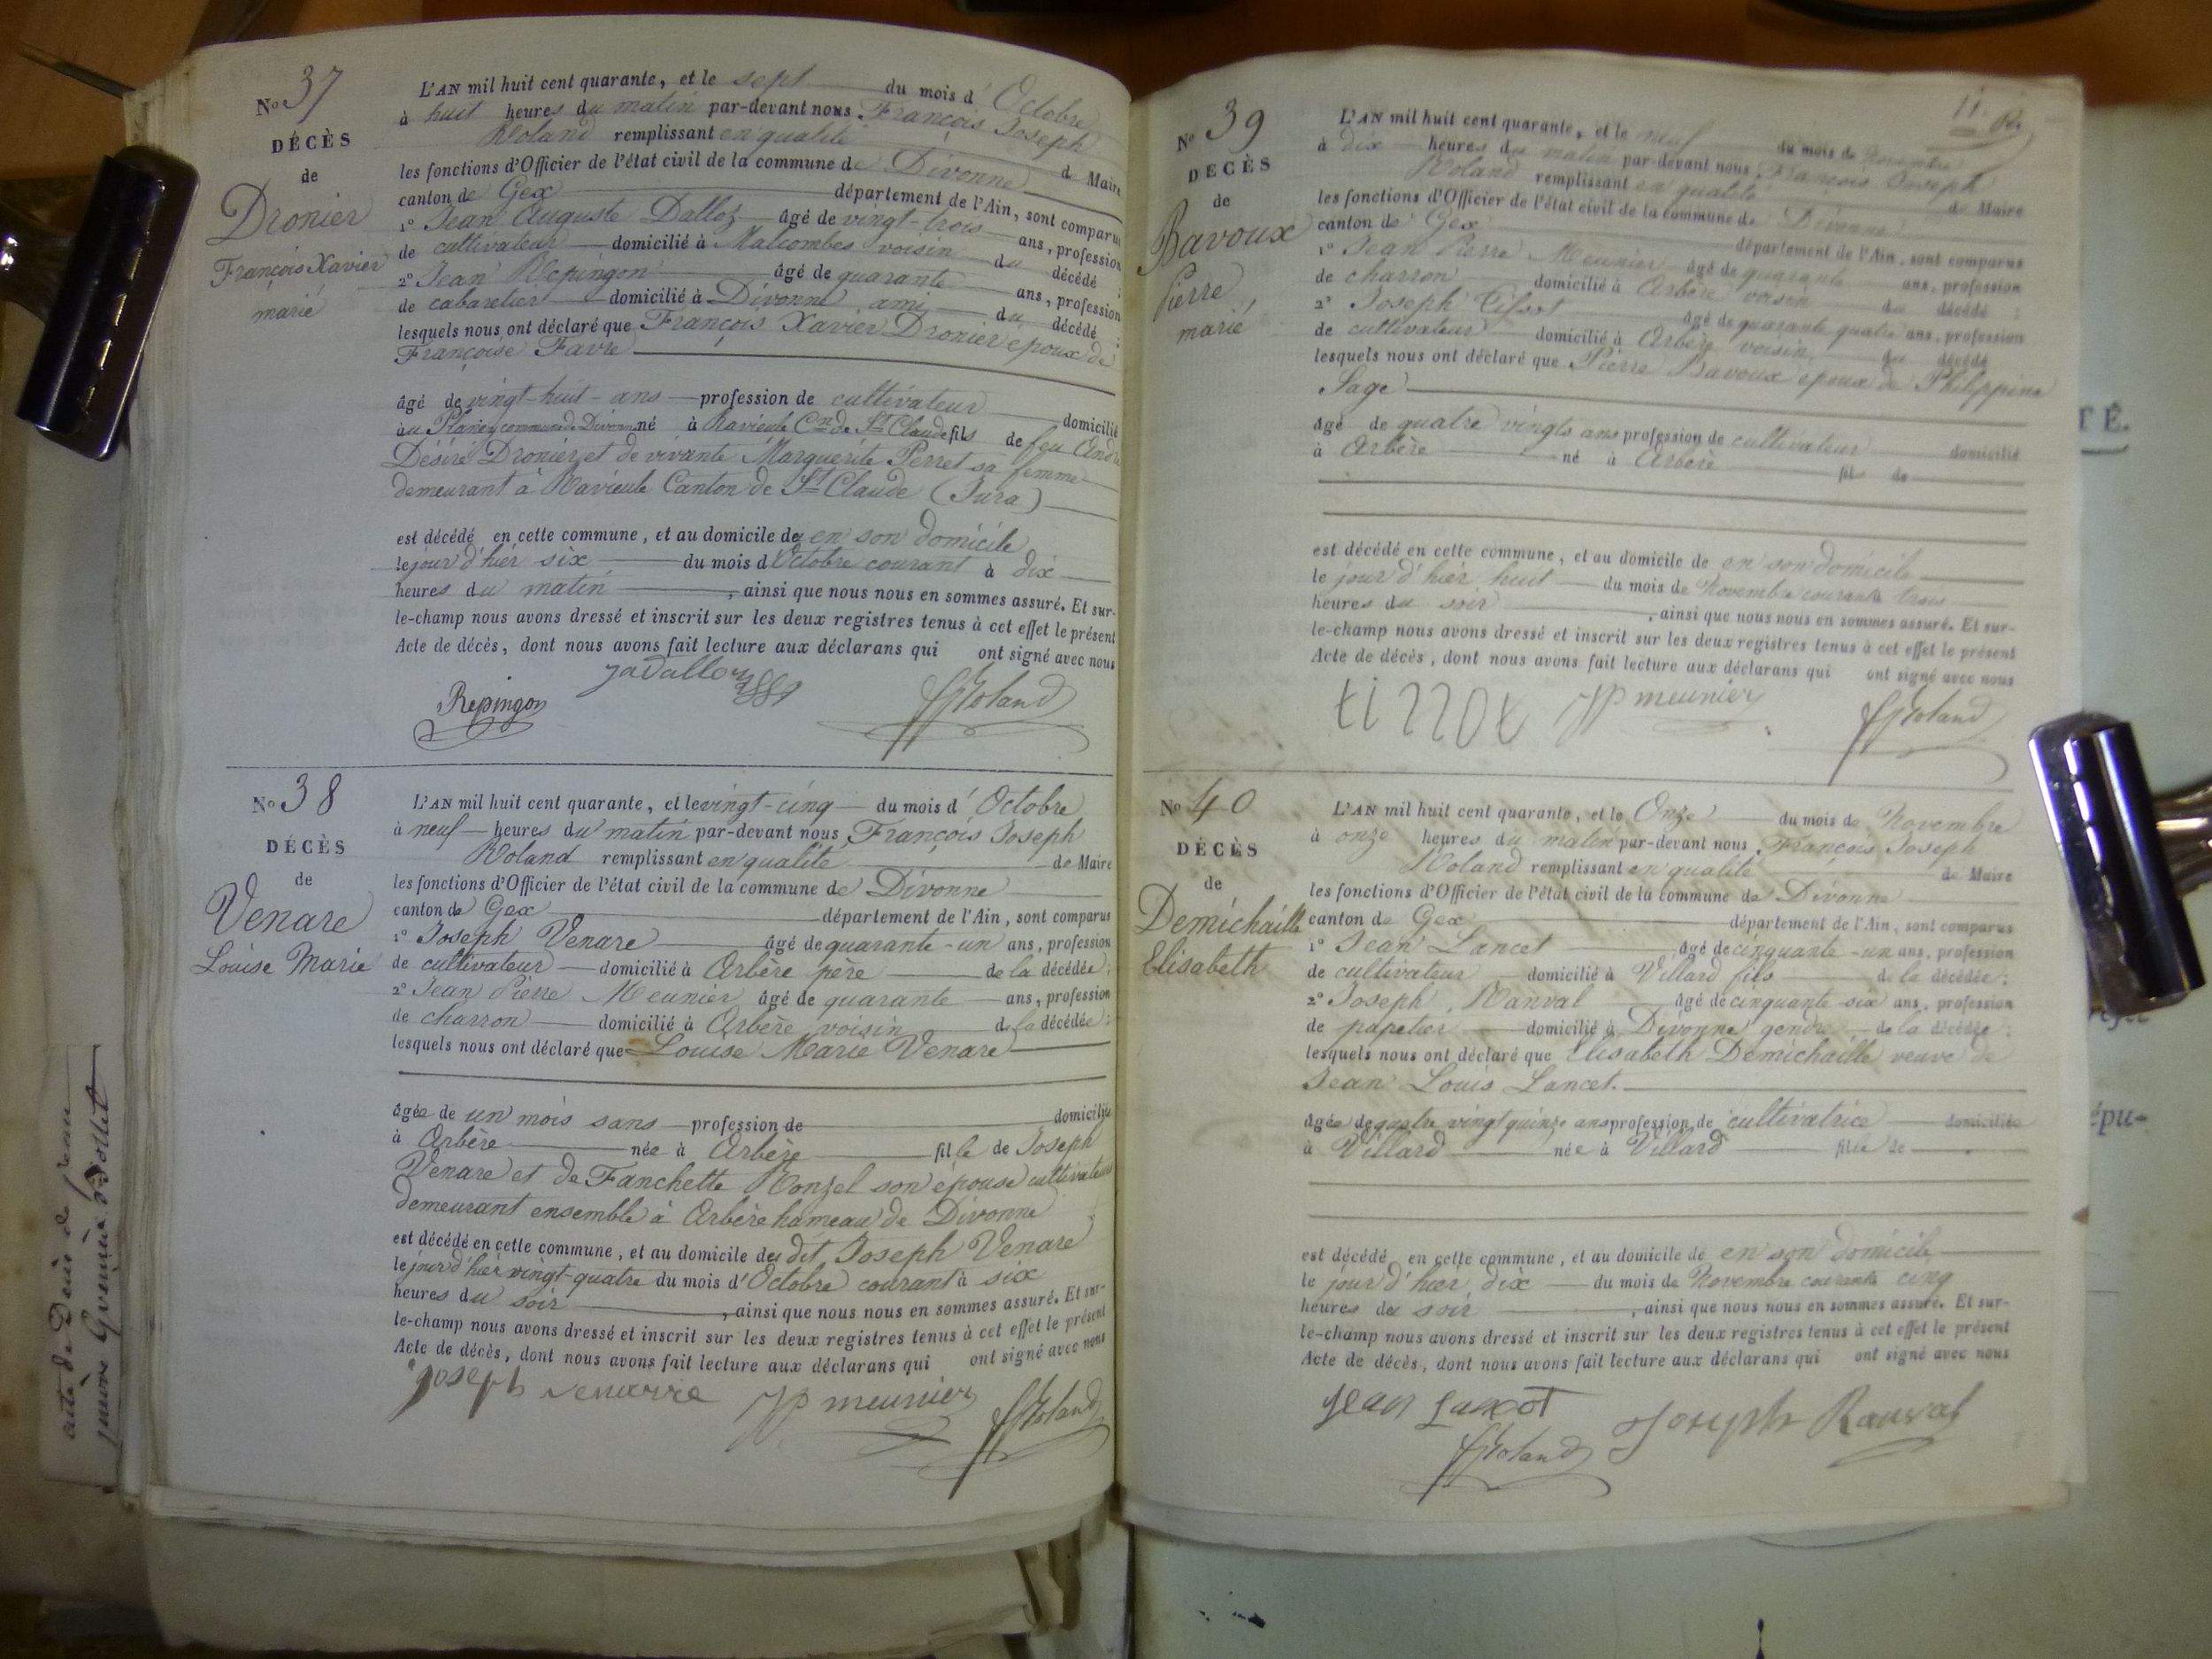 No 37
DÉCÈS
de
Dronier
François Xavier
marié
L'AN mil huit cent quarante, et le sept du mois d'Octobre
à huit heures du matin par-devant nous François Joseph
Roland remplissant en qualité de Maire
les fonctions d'Officier de l'état civil de la commune de Divonne
canton de Gex département de l'Ain, sont comparus
1° Jean Auguste Dalloz âgé de vingt-trois ans, profession
de cultivateur domicilié à Malcombes voisin du décédé ;
2° Jean Repingon âgé de quarante ans, profession
de cabaretier domicilié à Divonne ami du décédé ;
lesquels nous ont déclaré que François Xavier Dronier époux de
Françoise Favre
âgé de vingt-huit ans profession de cultivateur domicilié
au commune de Divonne né à Ravieule Con de St Claude fils de feu André
Désiré Dronier et de vivante Marguerite Perret sa femme
demeurant à Ravieule Canton de St Claude (Jura)
est décédé en cette commune, et au domicile de en son domicile
le jour d'hier six du mois d'Octobre courant à dix
heures du matin, ainsi que nous nous en sommes assuré. Et sur-
le-champ nous avons dressé et inscrit sur les deux registres tenus à cet effet le présent
Acte de décès, dont nous avons fait lecture aux déclarans qui ont signé avec nous
Repingon jadalloz FJRoland
No 38
DÉCÈS
de
Venare
Louise Marie
L'AN mil huit cent quarante, et le vingt-cinq du mois d'Octobre
à neuf heures du matin par-devant nous François Joseph
Roland remplissant en qualité de Maire
les fonctions d'Officier de l'état civil de la commune de Divonne
canton de Gex département de l'Ain, sont comparus
1° Joseph Venare âgé de quarante-un ans, profession
de cultivateur domicilié à Arbère père de la décédée ;
2° Jean Pierre Meunier âgé de quarante ans, profession
de charron domicilié à Arbère voisin de la décédée ;
lesquels nous ont déclaré que Louise Marie Venare
âgée de un mois sans profession de domiciliée
à Arbère née à Arbère fille de Joseph
Venare et de Fanchette Ronzel son épouse cultivateurs
demeurant ensemble à Arbère hameau de Divonne
est décédé en cette commune, et au domicile du dit Joseph Venare
le jour d'hier vingt-quatre du mois d'Octobre courant à six
heures du soir, ainsi que nous nous en sommes assuré. Et sur-
le-champ nous avons dressé et inscrit sur les deux registres tenus à cet effet le présent
Acte de décès, dont nous avons fait lecture aux déclarans qui ont signé avec nous
joseph venarre JP meunier FJRoland
acte de Décès de
11.
No 39
DÉCÈS
de
Bavoux
Pierre
marié
L'AN mil huit cent quarante, et le neuf du mois de Novembre
à dix heures du matin par-devant nous François Joseph
Roland remplissant en qualité de Maire
les fonctions d'Officier de l'état civil de la commune de Divonne
canton de Gex département de l'Ain, sont comparus
1° Jean Pierre Meunier âgé de quarante ans, profession
de charron domicilié à Arbère voisin du décédé ;
2° Joseph Tissot âgé de quarante quatre ans, profession
de cultivateur domicilié à Arbère voisin du décédé
lesquels nous ont déclaré que Pierre Bavoux époux de Philippine
Sage
âgé de quatre vingts ans profession de cultivateur domicilié
à Arbère né à Arbère fils de
est décédé en cette commune, et au domicile de en son domicile
le jour d'hier huit du mois de Novembre courant à trois
heures du soir, ainsi que nous nous en sommes assuré. Et sur-
le-champ nous avons dressé et inscrit sur les deux registres tenus à cet effet le présent
Acte de décès, dont nous avons fait lecture aux déclarans qui ont signé avec nous
JP meunier FJRoland
No 40
DÉCÈS
de
Demichaille
Elisabeth
L'AN mil huit cent quarante, et le Onze du mois de Novembre
à onze heures du matin par-devant nous François Joseph
Roland remplissant en qualité de Maire
les fonctions d'Officier de l'état civil de la commune de Divonne
canton de Gex département de l'Ain, sont comparus
1° Jean Lancet âgé de cinquante-un ans, profession
de cultivateur domicilié à Villard fils de la décédée ;
2° Joseph Ranval âgé de cinquante-six ans, profession
de papetier domicilié à Divonne gendre de la décédée ;
lesquels nous ont déclaré que Elisabeth Demichaille veuve de
Jean Louis Lancet.
âgée de quatre vingt quinze ans profession de cultivatrice domiciliée
à Villard née à Villard fille de
est décédé en cette commune, et au domicile de en son domicile
le jour d'hier dix du mois de Novembre courant à cinq
heures du soir, ainsi que nous nous en sommes assuré. Et sur-
le-champ nous avons dressé et inscrit sur les deux registres tenus à cet effet le présent
Acte de décès, dont nous avons fait lecture aux déclarans qui ont signé avec nous
jean Joseph Ranval
FJRoland
TÉ.
épu-